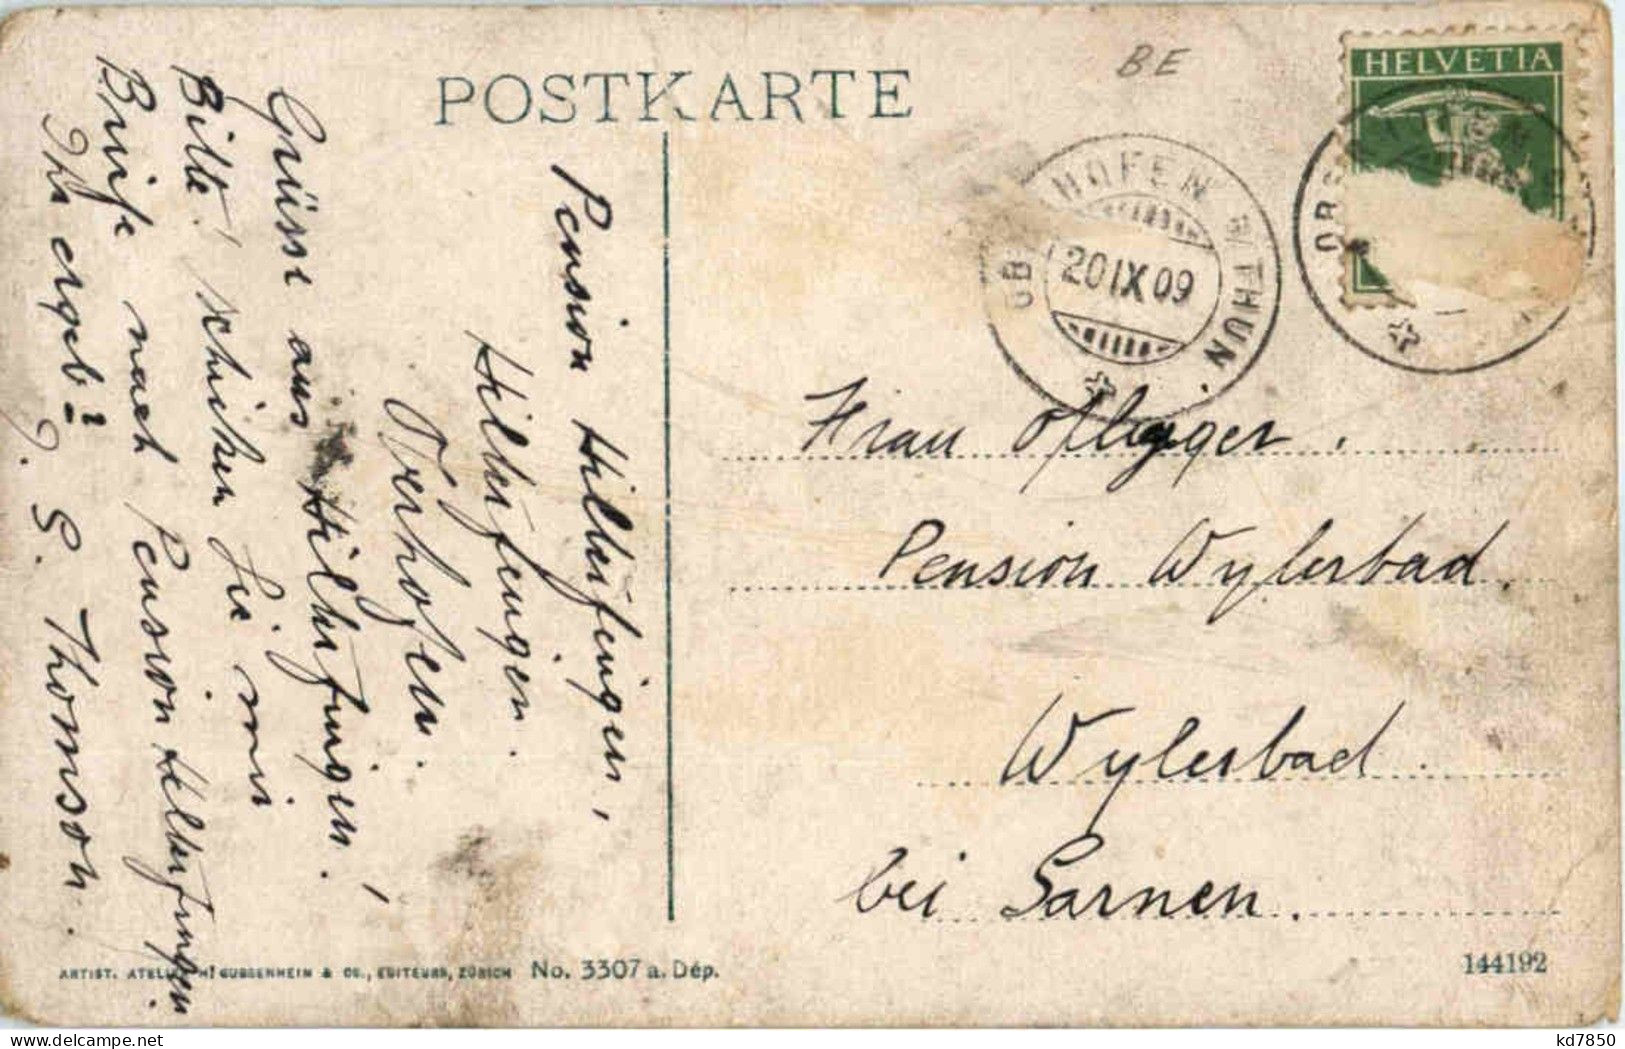 POSTKARTE
BE
HELVETIA
HOFEN
THUN
20 IX 09
Pension Hilterfingen,
Hilterfingen.
Oberhofen.
Grüsse aus Hilterfingen!
Bitte! schicken Sie mir
Briefe nach Pension Hilterfingen.
Ihr ergeb
J. S. Thomson.
Frau
Pension Wylerbad.
Wylerbad.
bei Sarnen.
ARTIST. ATELIER H. GUGGENHEIM & CO., EDITEURS, ZÜRICH No. 3307 a. Dép.
144192
kd7850